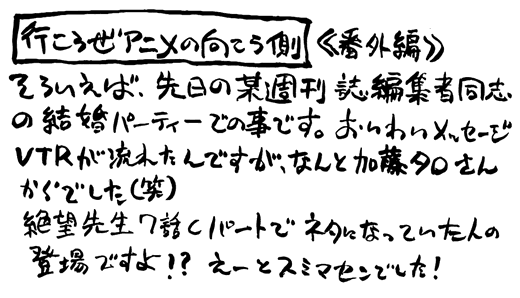 行こうぜアニメの向こう側《番外編》
そういえば、先日の某週刊誌編集者同志
の結婚パーティーでの事です。おいわいメッセージ
VTRが流れたんですが、なんと加藤夕〇さん
からでした(笑)
絶望先生7話Cパートでネタになっていた人の
登場ですよ!? えーとスミマセンでした!